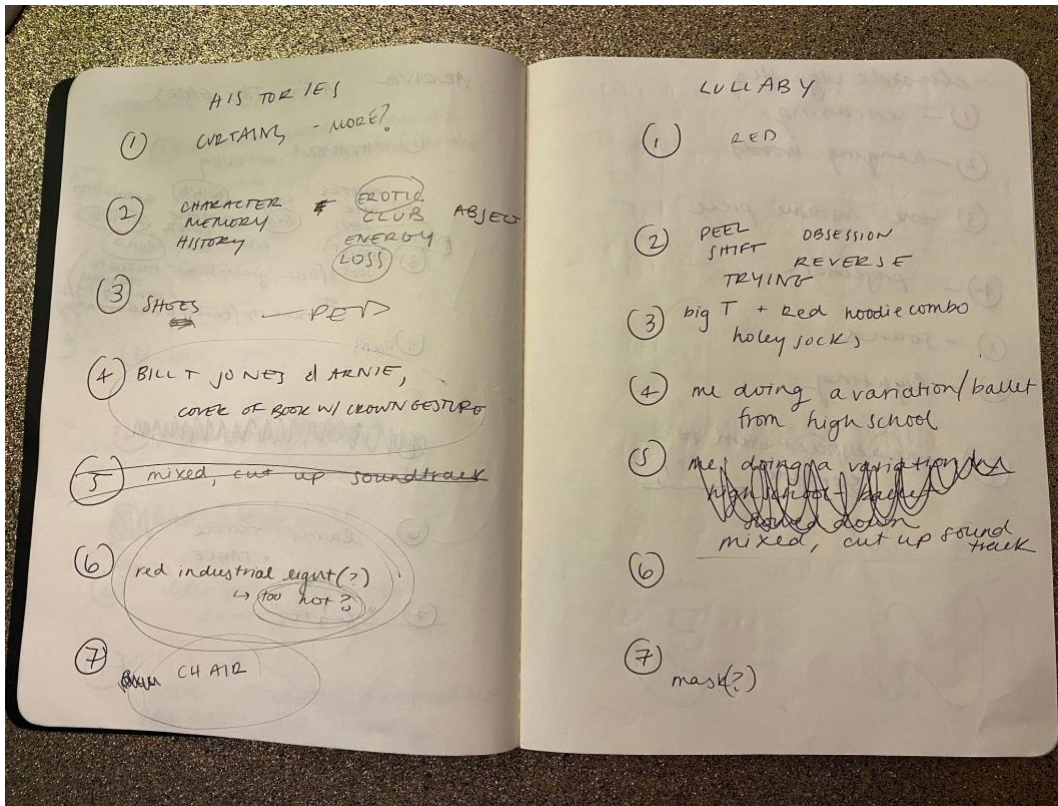 HISTORIES
① CURTAINS - MORE?
② CHARACTER EROTIC
MEMORY CLUB ABJECT
HISTORY ENERGY
LOSS
③ SHOES
④ BILL T JONES & ARNIE,
COVER OF BOOK W/ CROWN GESTURE
⑤ mixed, cut up soundtrack
⑥ red industrial light(?)
↳ too hot?
⑦ CHAIR
LULLABY
① RED
② PEEL OBSESSION
SHIFT REVERSE
TRYING
③ big T + Red hoodie combo
holey socks
④ me doing a variation/ballet
from high school
⑤ me doing a variation
high school ballet
slowed down
mixed, cut up sound
track
⑥
⑦ mask(?)